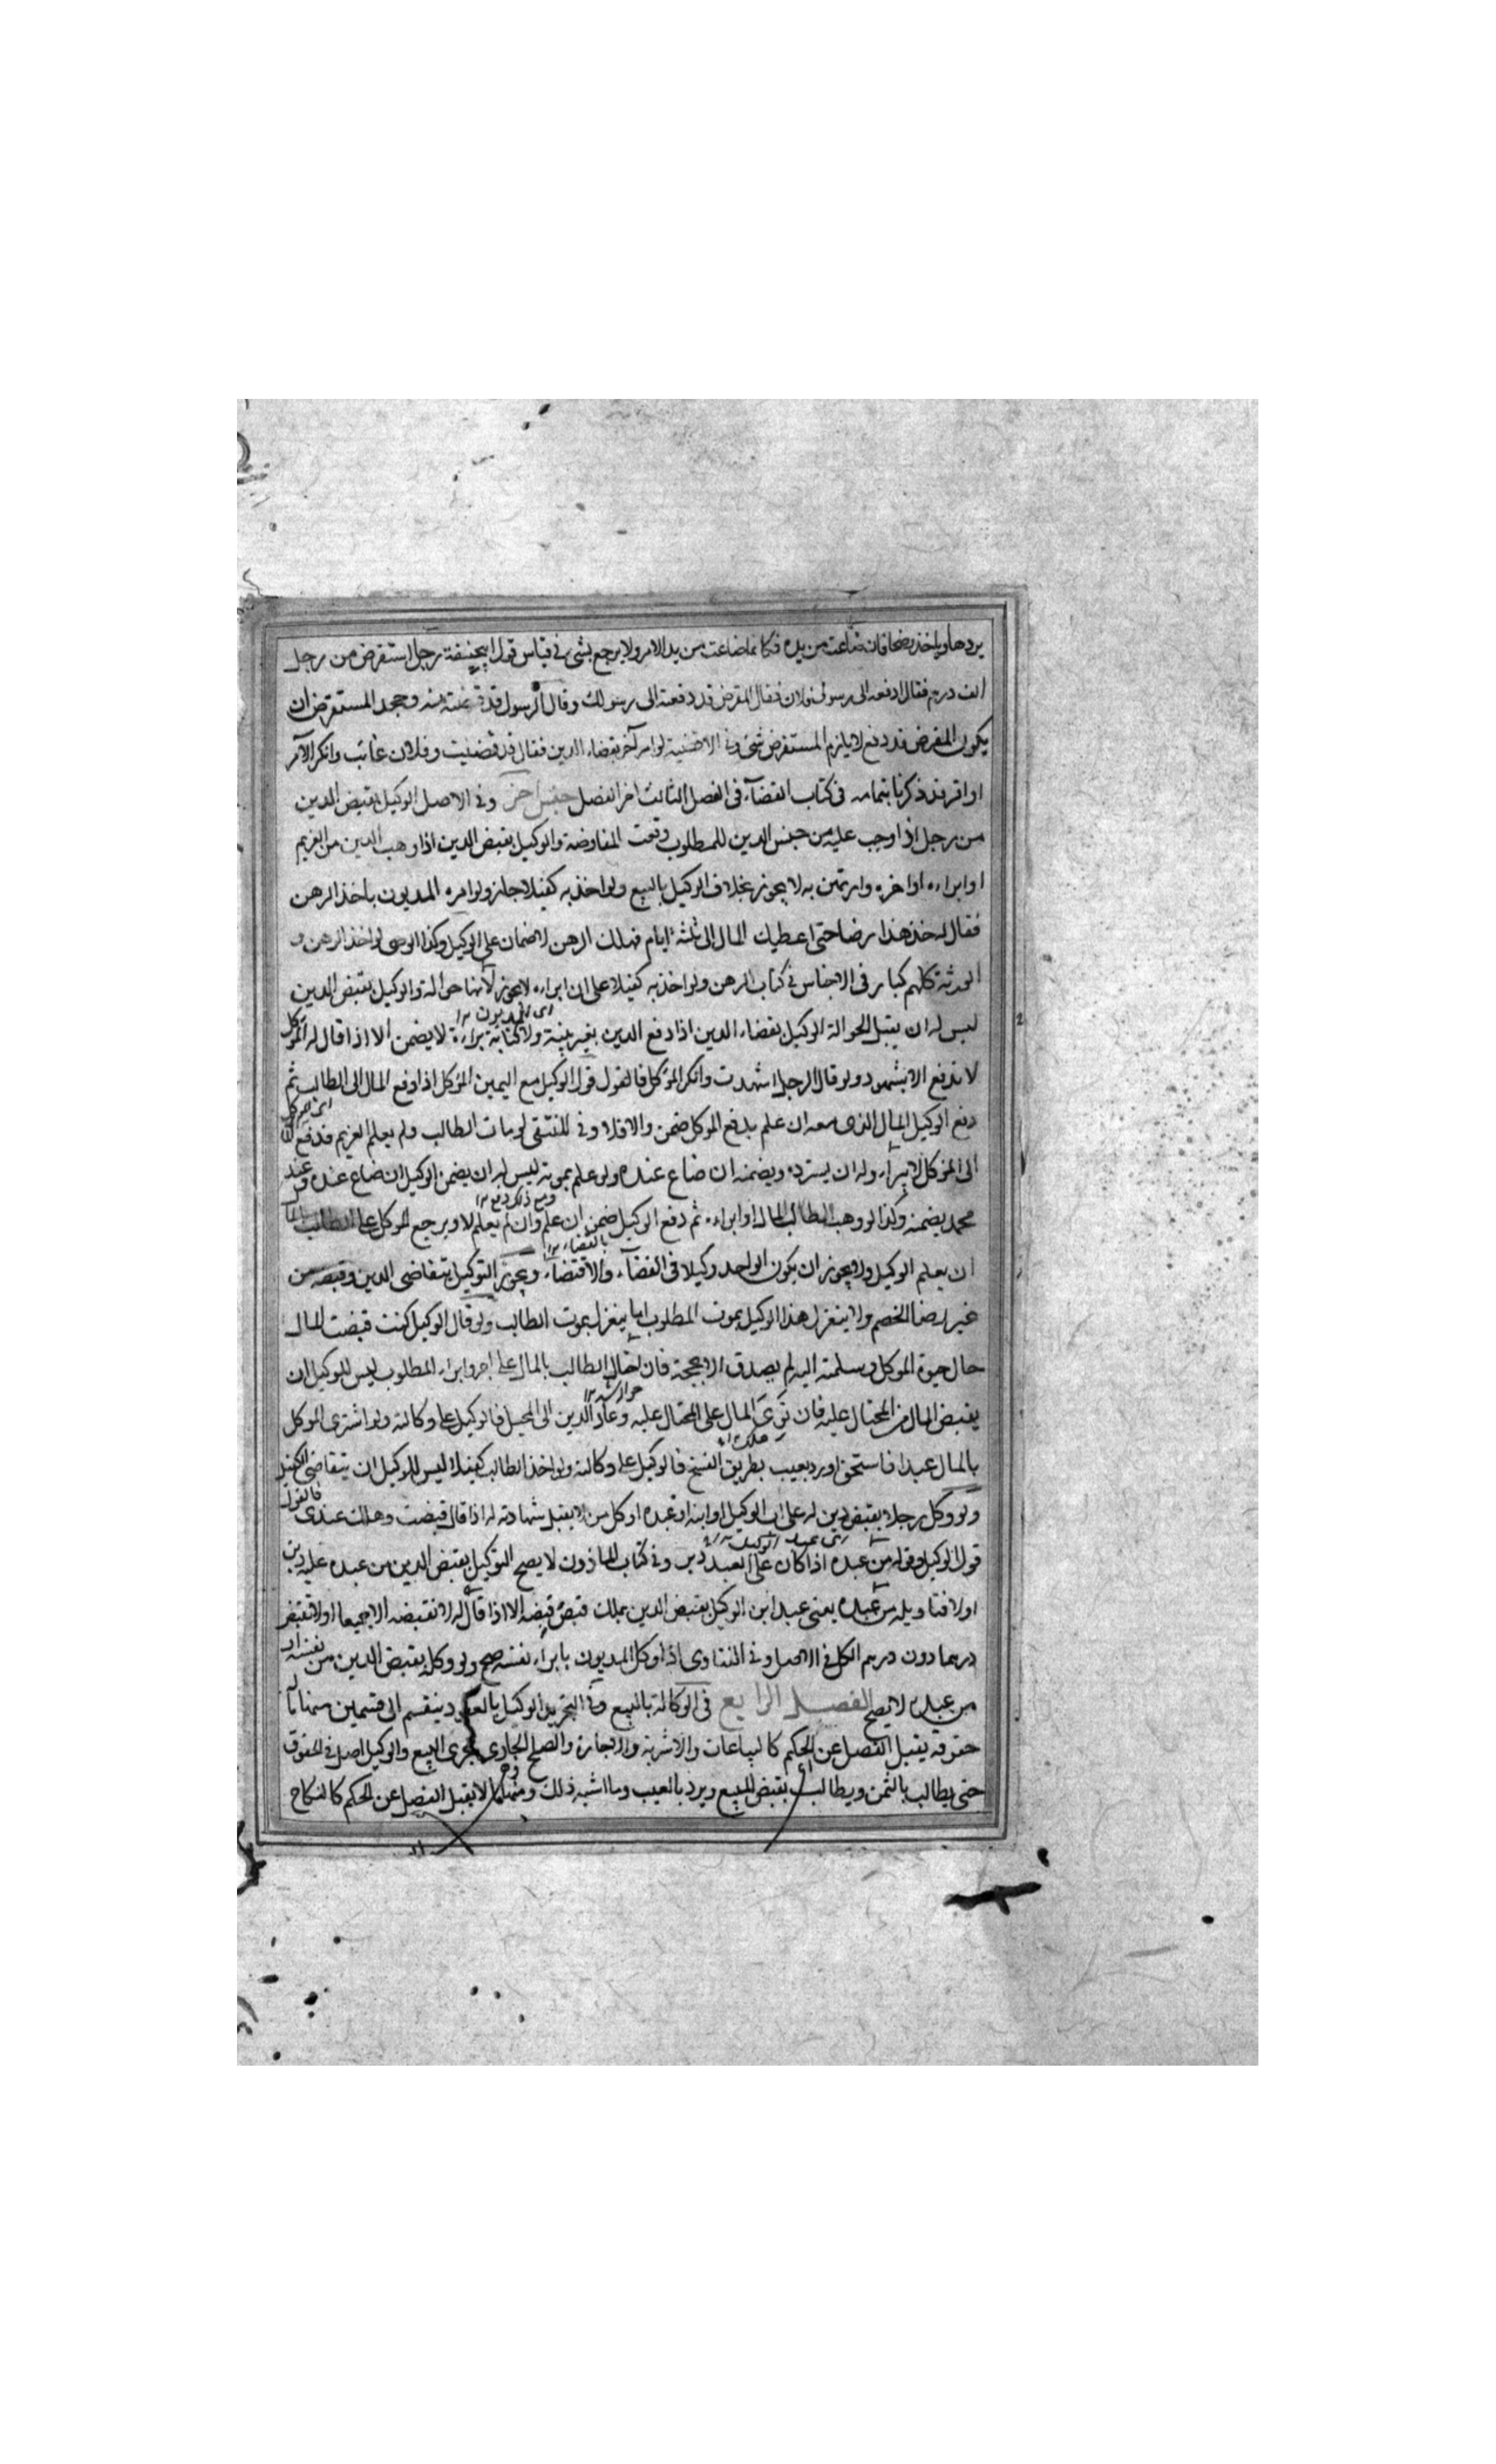 يردها وياخذ بضحافان ضاعت من يده فكانما ضاعت من يد الامر ولا يرجع بشئ في قياس قول ابيحنيفة رجل استقرض من رجل
الف درهم فقال ادفعه الى رسولى فلان فقال المقرض قد دفعته الى رسولك وقال الرسول قد قبضته منه وجحد المستقرض ان
يكون المقرض قد دفع لا يلزم المستقرض شئ وفى الاقضية لو امر آخر بقضاء الدين فقال قد قضيت وفلان غائب وانكر الآمر
او اقر قد ذكرنا بتمامه فى كتاب القضآء فى الفصل الثالث اخر الفصل جنس آخر وفى الاصل الوكيل بقبض الدين
من رجل اذا وجب عليه من جنس الدين للمطلوب وقعت المقاوضة والوكيل بقبض الدين اذا وهب الدين من الغريم
او ابراءه او اخره وارتهن به لا يجوز بخلاف الوكيل بالبيع ولو اخذ به كفيلا جاز ولو امره المديون باخذ الرهن
فقال له خذ هذا رضا حتى اعطيك المال الى ثلثة ايام فهلك الرهن لا ضمان على الوكيل وكذا الوصى لو اخذ الرهن و
الورثة كلهم كبار فى الاجناس فى كتاب الرهن ولو اخذ به كفيلا على ان ابراءه لا يجوز لأنها حوالة والوكيل بقبض الدين
ليس له ان يقبل الحوالة الوكيل بقضاء الدين اذا دفع الدين بغير بينة ولا كتابة براءة لا يضمن الا اذا قال له الموكل
اى المديون
لا تدفع الا بشهود ولو قال الرجل اشهدت وانكر الموكل فالقول قول الوكيل مع اليمين الموكل اذا دفع المال الى الطالب ثم
دفع الوكيل المال الذى معه ان علم بدفع الموكل ضمن والا فلا وفى المنتقى لو مات الطالب ولم يعلم الغريم فدفع
الى الموكل لا يبراء وله ان يسترده ويضمنه ان ضاع عنده ولو علم بموته ليس له ان يضمن الوكيل ان ضاع عنده وعند
محمد يضمنه وكذا لو وهب الطالب المال او ابراءه ثم دفع الوكيل ضمن ان علم وان لم يعلم لا ويرجع الموكل على الطالب
ان يعلم الوكيل ولا يجوز ان يكون الواحد وكيلا فى القضآء والاقتضآء ويجوز التوكيل بتقاضى الدين وقبضه من
غير رضا الخصم ولا ينعزل هذا الوكيل بموت المطلوب انما ينعزل بموت الطالب ولو قال الوكيل كنت قبضت المال
حال حيوة الموكل وسلمته اليه لم يصدق الا بحجة فان احال الطالب بالمال على اخر وابراء المطلوب ليس للوكيل ان
يقبض المال من المحتال عليه فان توى المال على المحتال عليه وعاد الدين الى المحيل فالوكيل على وكالته ولو اشترى الموكل
بالمال عبدا فاستحق او رد بعيب بطريق الفسخ فالوكيل على وكالته ولو اخذ الطالب كفيلا ليس للوكيل ان يتقاضى الكفيل
ولو وكل رجلا بقبض دين له على اب الوكيل او ابنه او عبده او كل من لا يقبل شهادته له اذا قال قبضت وهلك عندى فالقول
قول الوكيل وقوله من عبده اذا كان على العبد دين وفى كتاب الماذون لا يصح التوكيل بقبض الدين من عبده عليه دين
اولا فتاويله من عبده يعنى عبد ابن الوكيل بقبض الدين يملك قبض بعضه الا اذا قال له لا تقبضه الا جميعا او لا تقبض
درهما دون درهم الكل فى الاصل وفى الفتاوى اذا وكل المديون بابراء نفسه صح ولو وكله بقبض الدين من نفسه او
من عبده لا يصح الفصل الرابع فى الوكالة بالبيع وفى التجريد الوكيل بالعقود ينقسم الى قسمين منها ما
حقوقه يقبل الفصل عن الحكم كالبياعات والاشربة والاجارة والصلح الجارى مجرى البيع والوكيل اصل فى الحقوق
حتى يطالب بالثمن ويطالب بقبض المبيع ويرد بالعيب وما اشبه ذلك ومنها ما لا يقبل الفصل عن الحكم كالنكاح